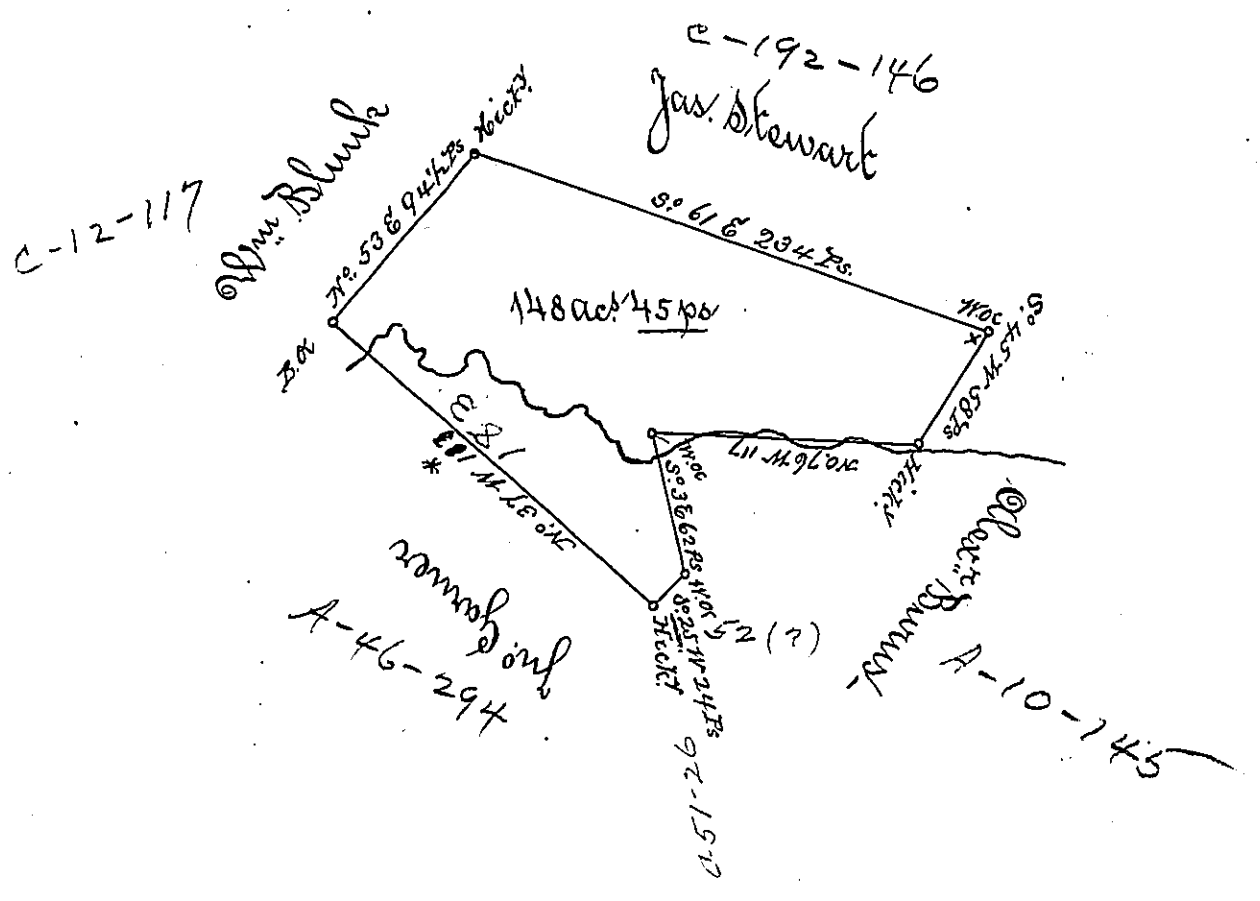 C-192-146
Jas. Stewart
C-12-117
Wm Blunk
Hicky.
No. 53 E 94½ Ps
So. 61 E 234 Ps.
148 acs. 45 ps
B.O
W.O
x
So. 45 W 58 Ps
Hicky
No. 76 W 117
W.O
So. 3 E 62 Ps
W.O
So. 25 W 24 Ps
52 (?)
Hicky
183
*
No. 37 W 183
Jno. Garner
A-46-294
Alexr. Burns
A-10-145
C-51-26